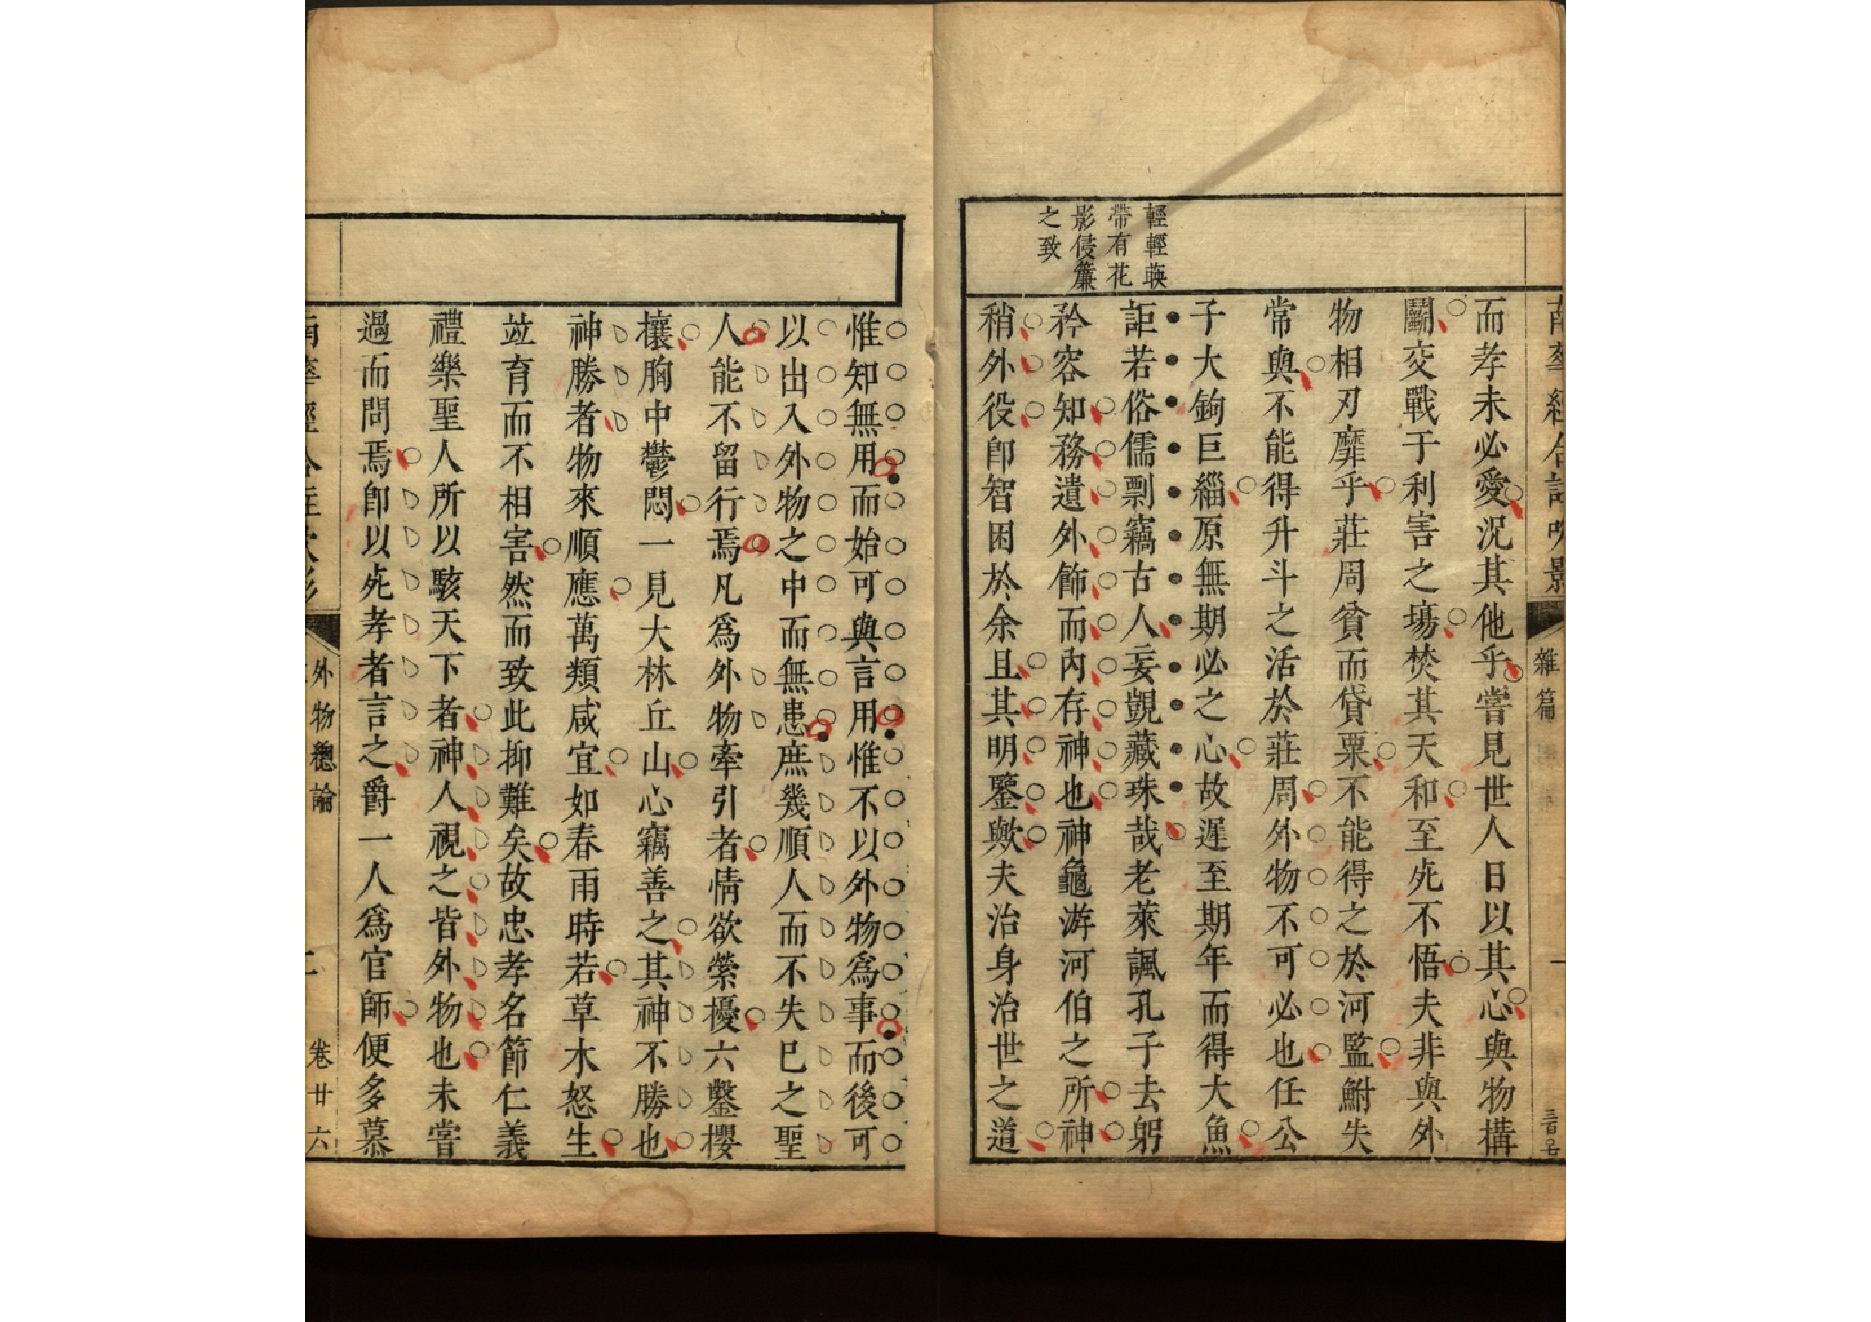 雜篇
輕輕暎
帶有花
影侵簾
之致
而孝未必愛況其他乎嘗見世人日以其心與物搆
鬭交戰于利害之塲焚其天和至死不悟夫非與外
物相刃靡乎莊周貧而貸粟不能得之於河監鮒失
常與不能得升斗之活於莊周外物不可必也任公
子大鉤巨緇原無期必之心故遅至期年而得大魚
詎若俗儒剽竊古人妄覬藏珠哉老萊諷孔子去躬
矜容知務遺外飾而內存神也神龜游河伯之所神
稍外役卽智困於余且其明鑒歟夫治身治世之道
惟知無用而始可與言用惟不以外物爲事而後可
以出入外物之中而無患庶幾順人而不失已之聖
人能不留行焉凡爲外物牽引者情欲縈擾六鑿攖
攘胸中鬱悶一見大林丘山心竊善之其神不勝也
神勝者物來順應萬類咸宜如春雨時若草木怒生
竝育而不相害然而致此抑難矣故忠孝名節仁義
禮樂聖人所以駭天下者神人視之皆外物也未嘗
過而問焉卽以死孝者言之爵一人爲官師便多慕
外物總論
二
卷廿六